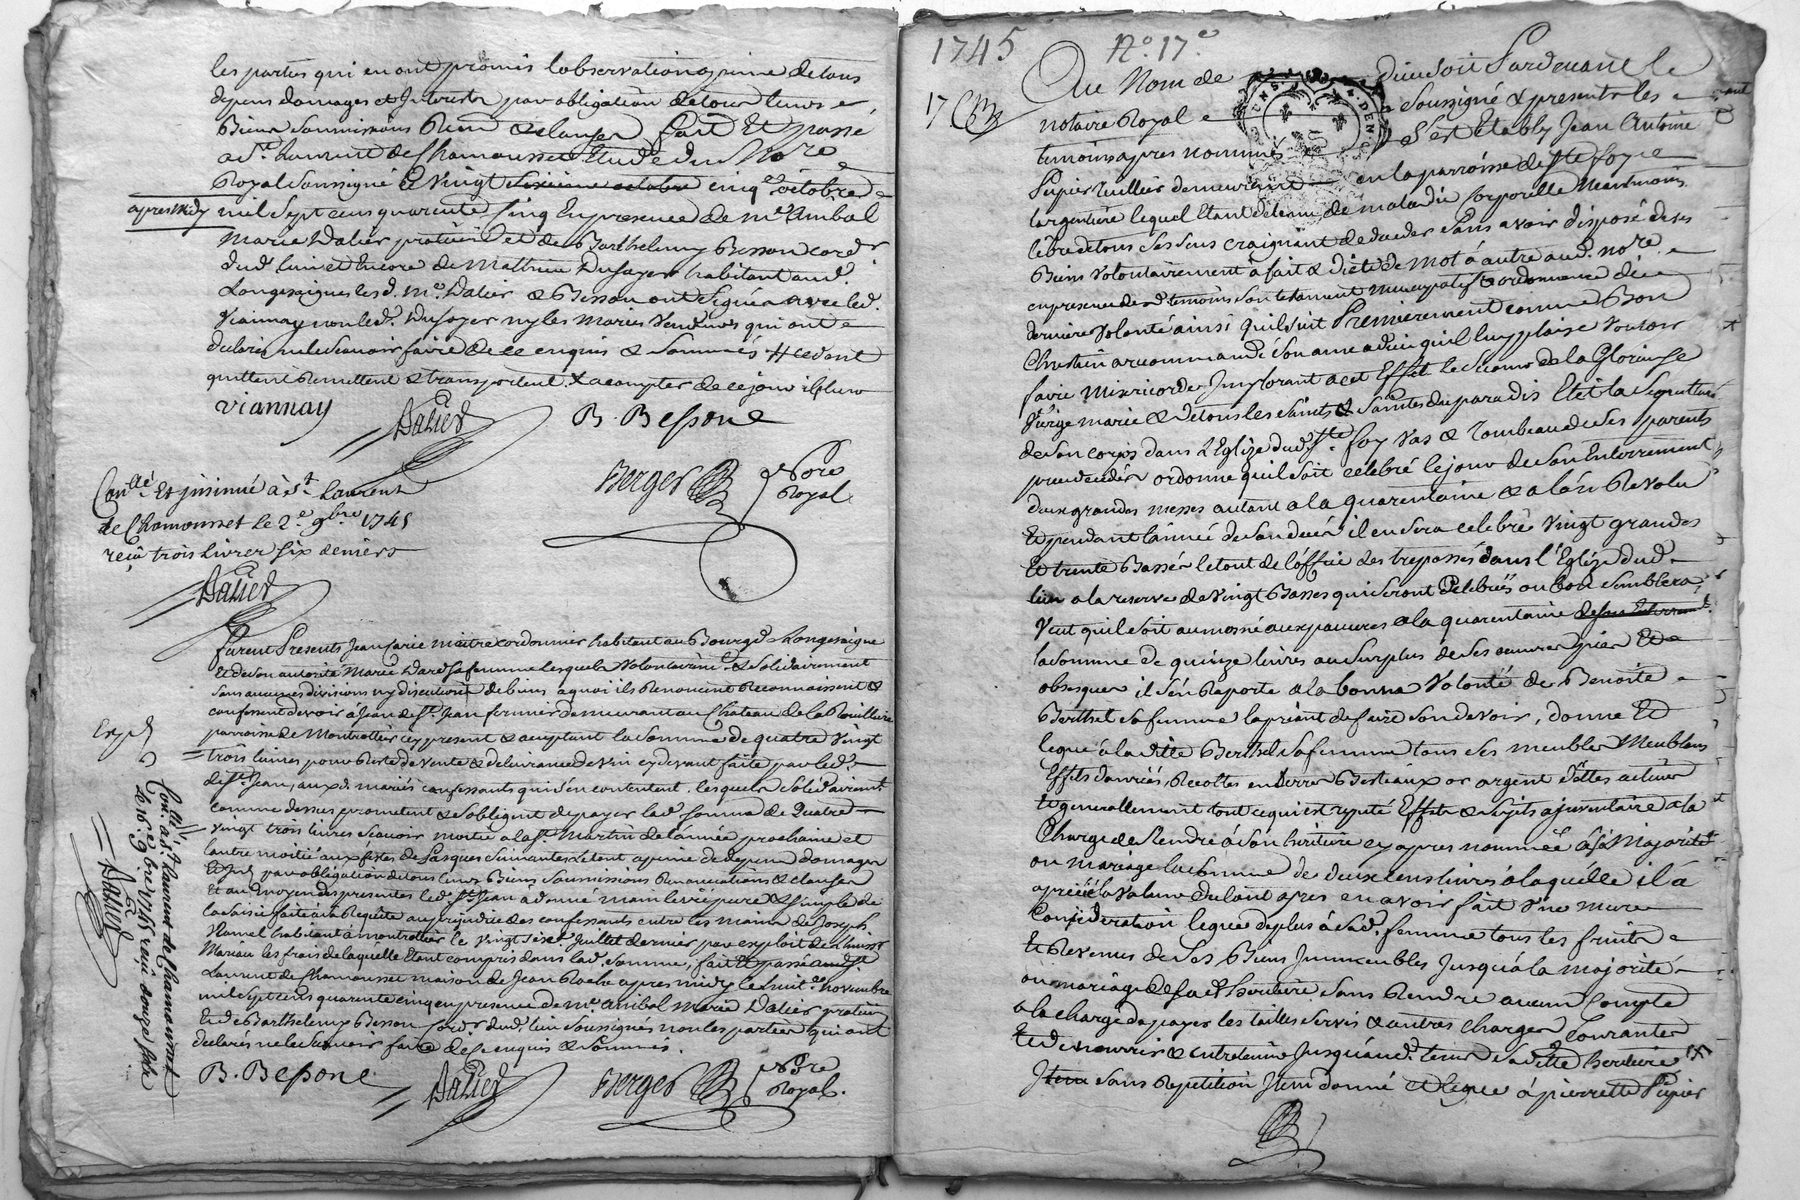 les parties qui en ont promis l'observation a peine de tous
depens domages et Interests par obligation de tous leurs
Biens Soumissions Ren.ons & clauses fait Et passé
a St Laurent de Chamousset Etude du No.re
Royal Soussigné le vingt Sixieme octobre cinq.e octobre
apres Midy mil Sept cens quarente Cinq En presence de m.e anibal
Marie Dalier praticien et de Barthelemy Besson cord.r
dud. lieu et Encore de Mathieu Dufayer habitant aud.
Longessaignes lesd. m.e Dalier & Besson ont Signé avec led.
Viannay non led. Dufayer ny les Maries Vendeurs qui ont
declaré ne le Scavoir faire de ce enquis & Sommés # cedent
quittent Remettent & transportent X a compter de ce jour
Viannay Dalier B. Besson
Berger No.re Royal
Con.llé Et jnsinué a St Laurent
de Chamousset le 2.e 9bre 1745
reçu trois livres six deniers
Dalier
furent Presents Jean Carie maitre cordonnier habitant au Bourg de Longessaigne
Et de Son autorité Marie Dard Sa femme lesquels Volontairem.t & Solidairement
Sans aucunes divisions ny discution de biens a quoi ils Renoncent Reconnoissent &
confessent devoir à Jean de St Jean fermier demeurant au Chateau de la Rouilliere
parroisse de Montrottier icy present & acceptant la Somme de quatre Vingt
trois livres pour Reste de vente & delivrance de vin cy devant faite par led.
de St Jean, aux d. mariés confessants qui s'en contentent, lesquels Solidairement
comme dessus promettent & s'obligent de payer lad. Somme de Quatre
Vingt trois livres Scavoir moitié a la St Martin de l'année prochaine et
l'autre moitié aux fêtes de Pasques Suivantes le tout a peine de depens domages
Et Int. par obligation de tous leurs Biens Soumissions Renonciations & clauses
Et au moyen des presentes led. St Jean a donné main levée pure & Simple de
la Saisie faite à sa Requete au prejudice des confessants entre les mains de Joseph
Hamel habitant à montrottier le Vingt Six Juillet dernier par exploit de l'huissier
Mariau les frais de laquelle Etant compris dans lad. Somme, fait Et passé aud. St
Laurent de Chamousset maison de Jean Roche apres midy le huit.e novembre
mil Sept cens quarente cinq en presence de m.e anibal Marie Dalier praticien
Et de Barthelemy Besson Cord.r dud. lieu Soussignés non les parties qui ont
declarés ne le Scavoir faire de ce enquis & Sommés.
B. Besson Dalier Berger No.re Royal.
Exp.d
Con.llé a St Laurent de Chamousset
le 16.e 9bre 1745 reçu douze sols
Dalier
1745 No. 17.e
17
Au Nom de Dieu Soit Pardevant le
notaire Royal Soussigné & presents les
temoins apres nommés S'est Etably Jean Antoine
Pupier Tuillier demeurant en la parroisse de Ste foy
l'argentiere lequel Etant detenu de maladie Corporelle Neantmoins
libre de tous Ses Sens craignant de deceder Sans avoir disposé de Ses
Biens Volontairement à fait & dicté de mot à autre aud. no.re
en presence desd. temoins Son testament nuncupatif & ordonnance de
derniere Volonté ainsi quil Suit Premierement comme Bon
Chretien a recommandé Son ame a dieu quil luy plaise Vouloir
faire Misericorde Implorant a cet Effet le Secours de la Glorieuse
Vierge marie & de tous les Saints & Saintes du paradis Elit la Sepulture
de Son corps dans l'Eglise dud. Ste foy Vas & Tombeau de Ses parents
predecedés ordonne quil Soit celebré le jour de Son Enterrement
deux grandes messes autant a la quarentaine & a l'an Revolu
Et pendant l'année de Son deces il en Sera celebré Vingt grandes
Et trente Basses le tout de l'office des trepassés dans l'Eglise dud.
lieu a la reserve de Vingt Basses qui Seront Celebrées ou bon Semblera,
Veut quil Soit aumosné aux pauvres a la quarentaine de Son Enterrem.t
la Somme de quinze livres au Surplus de Ses oeuvres pies Et
obseques il S'en Raporte a la bonne Volonté de Benoite
Berthet Sa femme la priant de faire Son devoir, donne Et
legue à la ditte Berthet Sa femme tous Ses meubles Meublans
Effets danrées Recoltes en Terre Bestiaux or argent dettes actives
Et generallement tout ce qui est reputé Effets & Sujets a jnventaire a la
Charge de Rendre à Son heritiere cy apres nommée à Sa Majorité
ou mariage la Somme de deux cens livres à laquelle il à
apretié la Valeur du tout apres en avoir fait Une mure
Consideration legue de plus à Sad. femme tous les fruits
Et Revenus de Ses Biens Immeubles Jusqu'à la majorité
ou mariage de Sa d. heritiere Sans Rendre aucun Compte
a la charge de payer les tailles Servis & autres charges Courantes
Et de nourrir & entretenir Jusqu'aud. tems Sa ditte heritiere
Item Sans Repetition Item donné et legue à pierrette Pupier